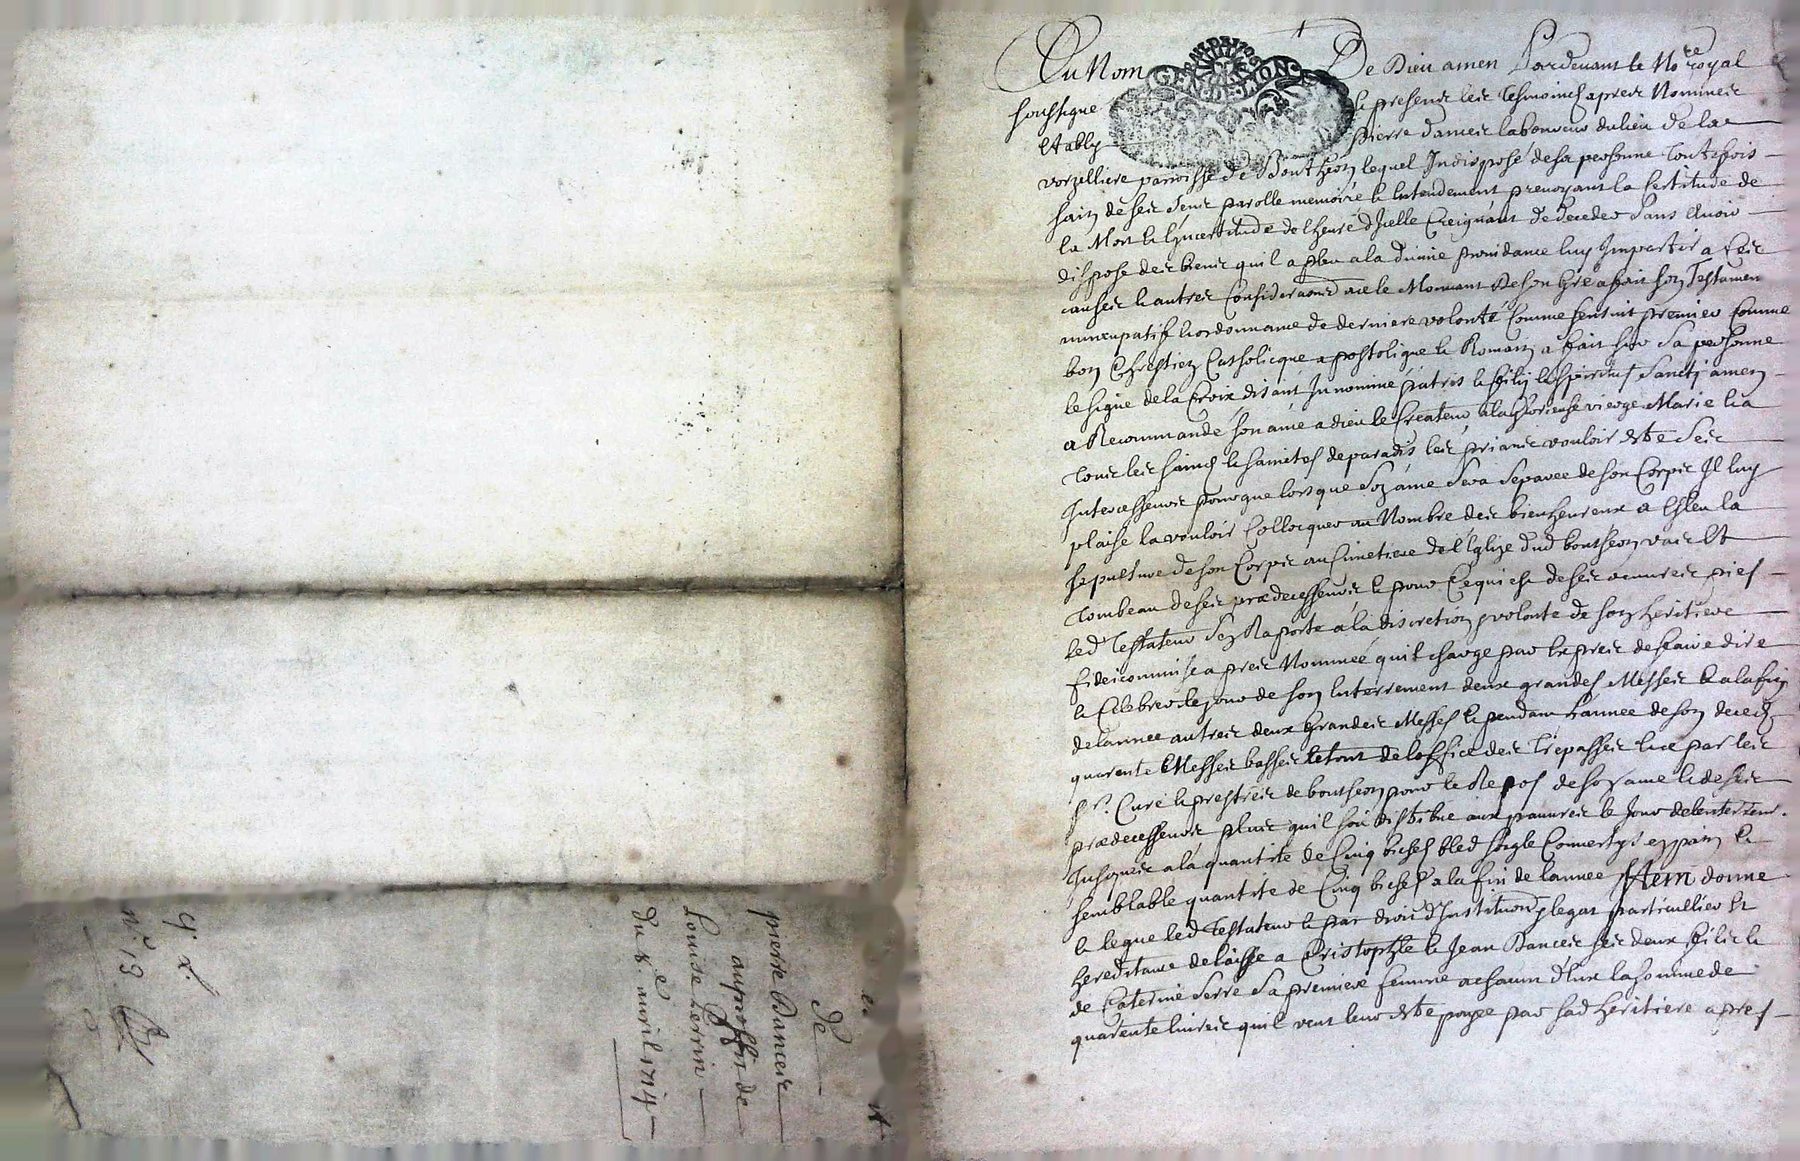 Au Nom De Dieu amen Pardevant le No.re royal
soussigne & presentz les tesmoings apres Nommes
estably Pierre dances laboureur du lieu de la
vorzelliere parroisse de Bontheon lequel Indisposé de sa personne toutesfois
sain de ses sens parolle memoire & entendement prevoyant la certitude de
la Mort & l'incertitude de l'heure d'Icelle Creignant de deceder sans avoir
dispose des biens quil a pleu a la divine providance luy Impartir a ces
causes & autres Considera~ons de son gré a fait son Testamen
nuncupatif & ordonnance de derniere volonté Comme sensuit premier Comme
bon Chrestien Catholicque apostolique & Romain a fait sur sa personne
le signe de la Croix disant In nomine patris & filij & spiritus sancti amen
a Recommandé son ame a dieu le Createur a la glorieuse vierge Marie & a
tous les saincts & sainctes de paradis les priant vouloir estre ses
Intercesseurs pour que lorsque son ame sera separee de son Corps Il luy
plaise la vouloir Collocquer au Nombre des bienheureux a Esleu la
sepulture de son Corps au Cimetiere de l'Eglize dud bontheon vas &
tombeau de ses prædecesseurs & pour Ce qui est de ses oeuvres pies
led Testateur s'en Raporte a la discretion & volonte de son heritiere
fideicommise apres Nommeé quil charge par expres de faire dire
& Celebrer le jour de son Enterrement deux grandes Messes & a la fin
de lannee autres deux Grandes Messes & pendant l'annee de son deces
quarente Messes basses le tout de l'office des trepasses & ce par les
Sr. Curé & prestres de bontheon pour le Repos de son ame & de ses
prædecesseurs plus quil soit distribue aux pauvres le Jour de lenterrem.
Jusques a la quantité de Cinq bichets bled seigle Convertys en pain &
semblable quantité de Cinq bichets a la fin de lannee Item donne
& legue led Testateur & par droit d'Institution & legat particullier &
hereditaire delaisse a Cristophle & Jean Dances ses deux filz &
de Caterine Serre sa premiere femme a chacun d'Eux la somme de
quarente livres quil veut leur estre payee par sad heritiere apres
de
pierre Dances
au proffit de
Louise Perrin
du 8.e avril 1714
n.o 19